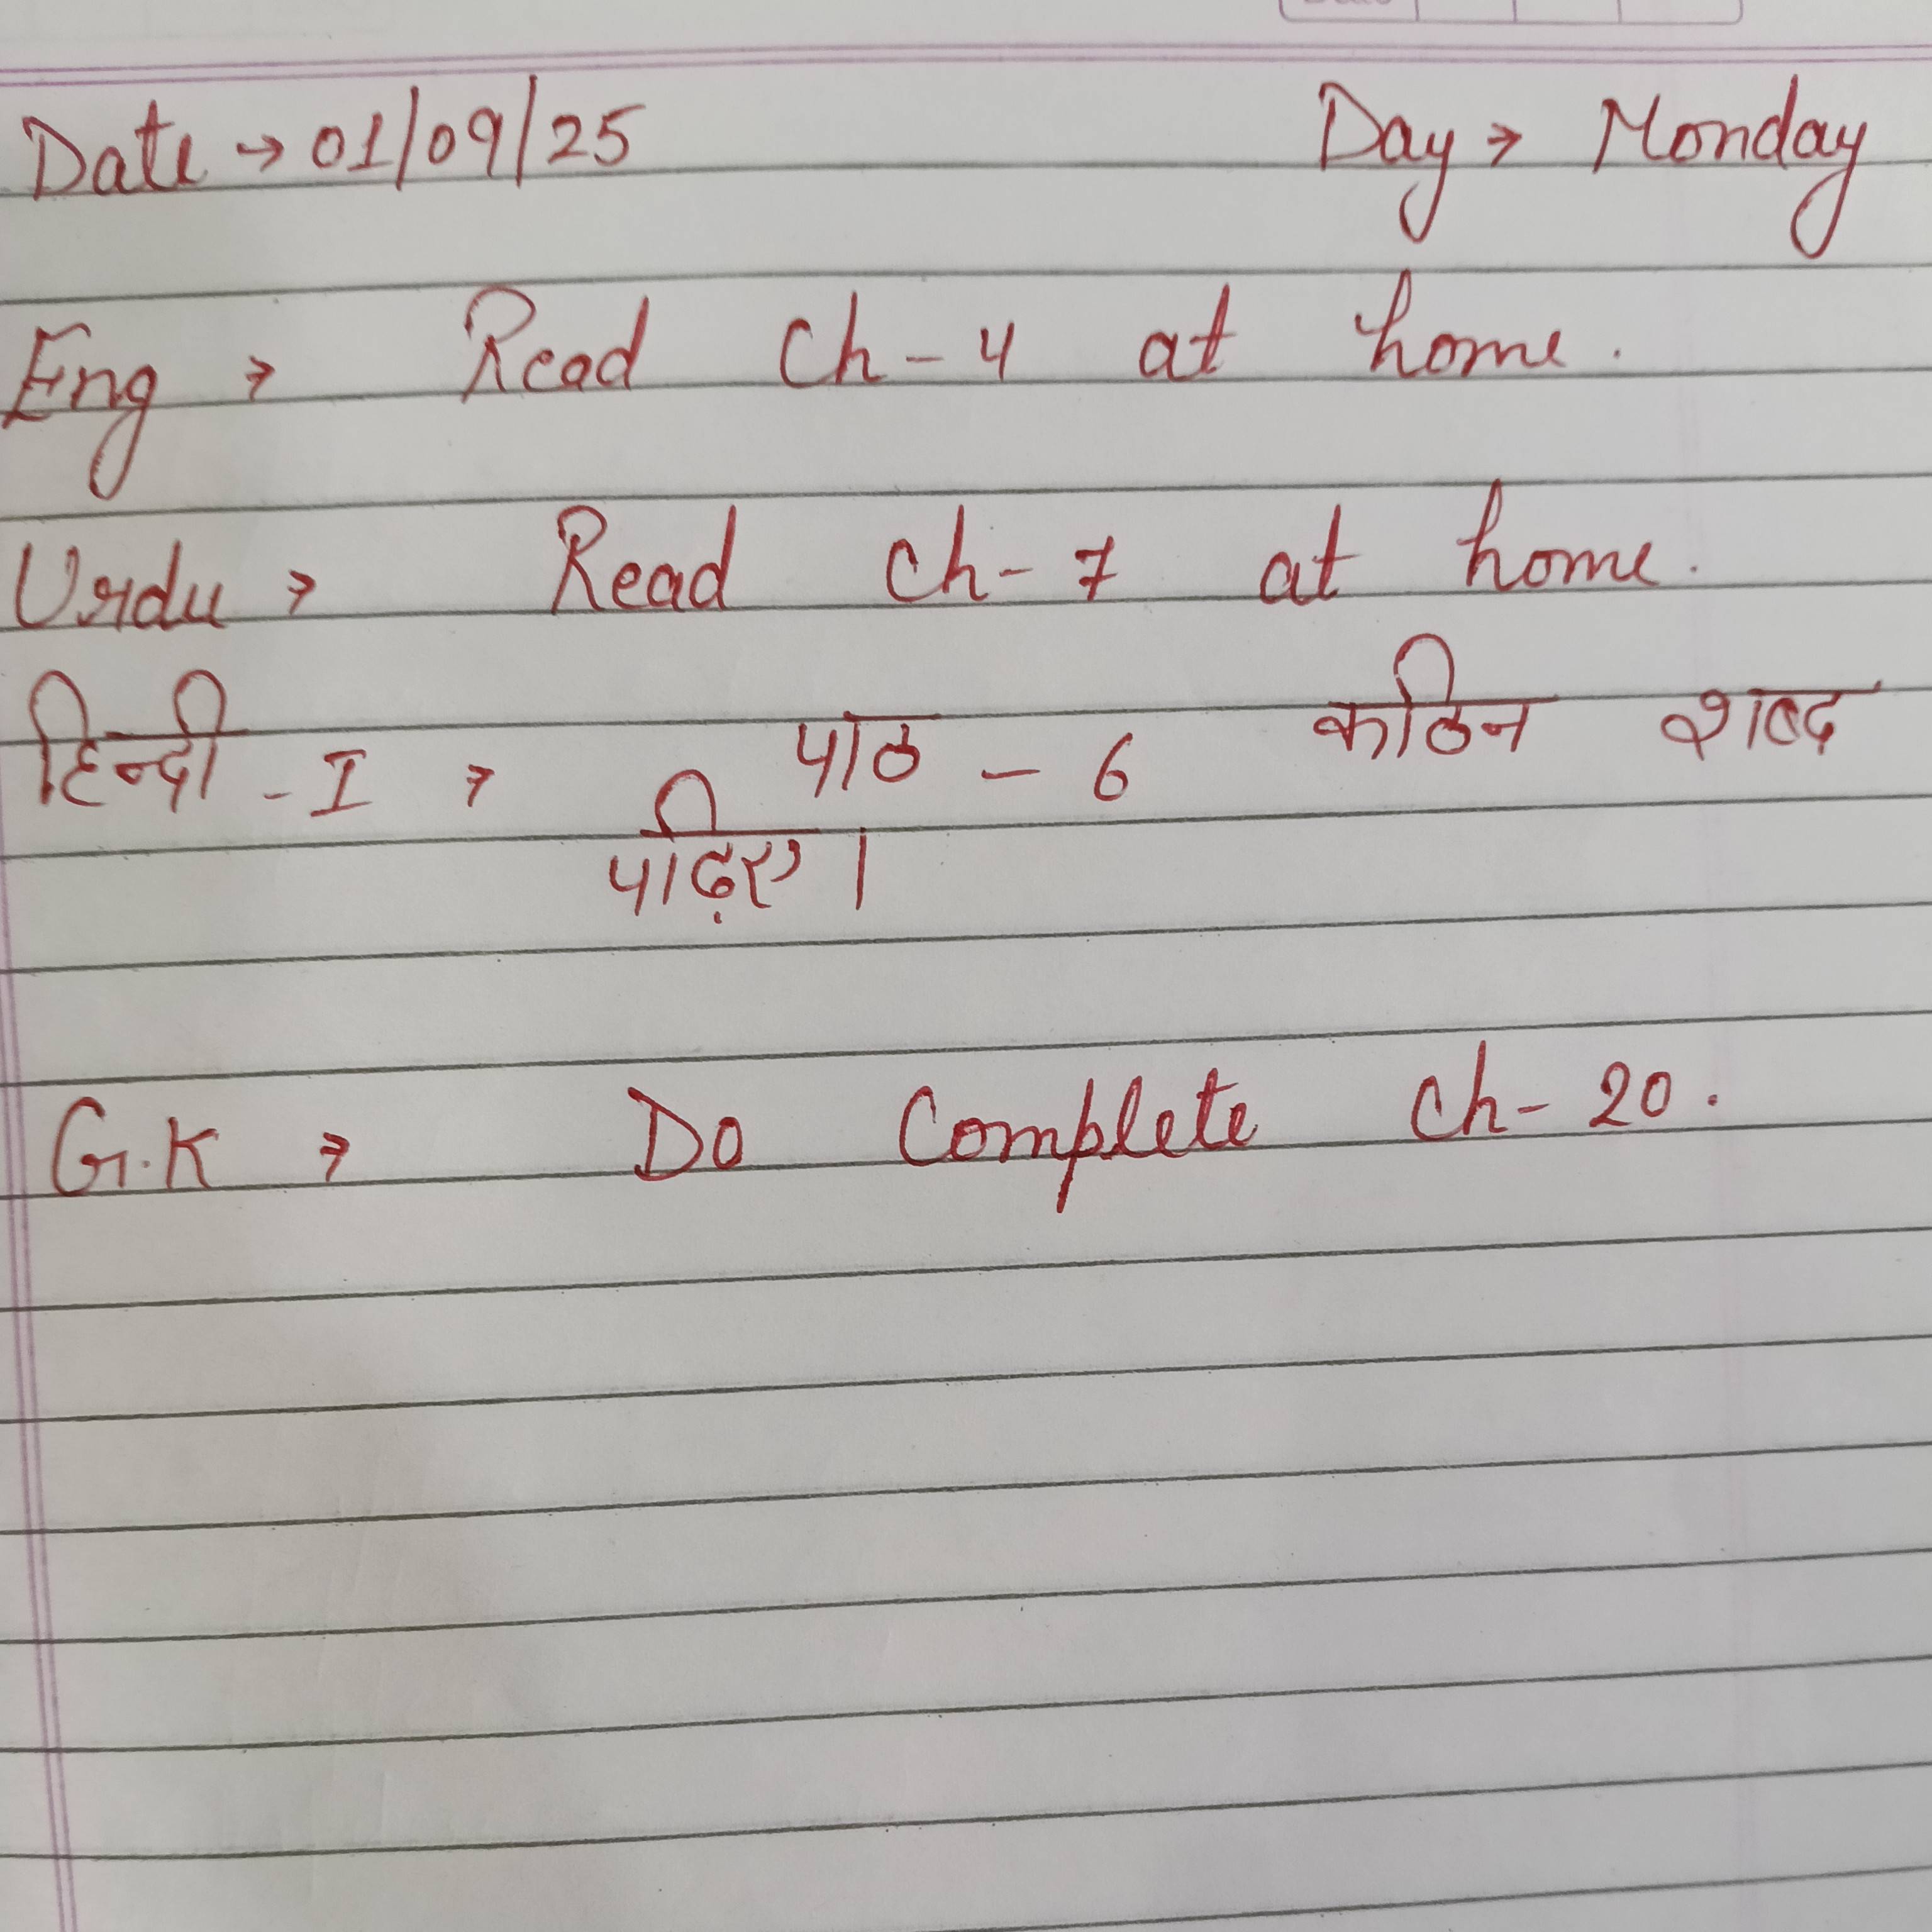 Date → 01/09/25 Day → Monday
Eng → Read Ch - 4 at home.
Urdu → Read Ch - 7 at home.
हिन्दी - I → पाठ - 6 कठिन शब्द
पढ़िए।
G.K → Do Complete Ch - 20.